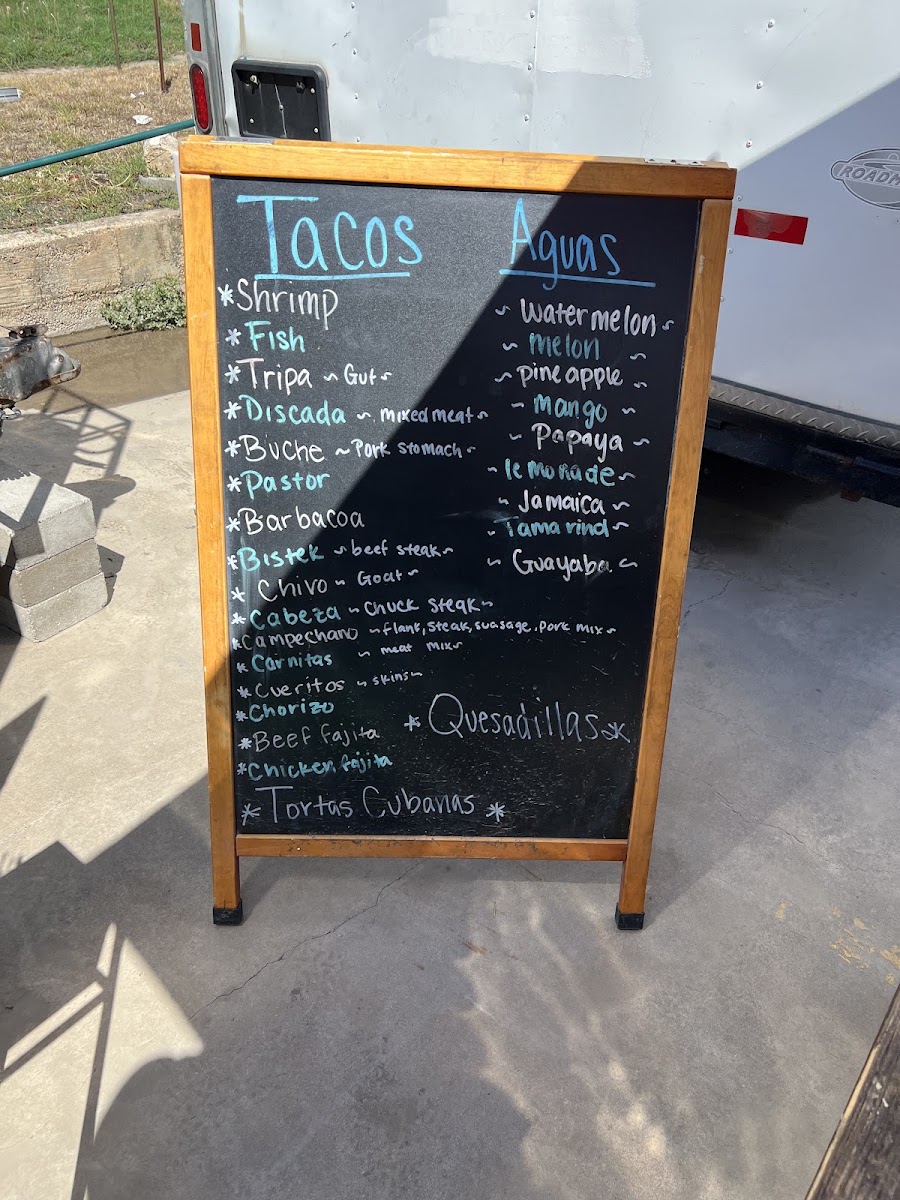 Tacos
*Shrimp
*Fish
*Tripa ~ Gut~
*Discada ~ mixed meat~
*Buche ~ Pork stomach~
*Pastor
*Barbacoa
*Bistek ~ beef steak~
* Chivo ~ Goat~
*Cabeza ~ Chuck steak~
*Campechano ~ flank, steak, suasage, pork mix~
*Carnitas ~ meat mix~
*Cueritos ~ skins~
*Chorizo
*Beef fajita
*Chicken fajita
* Tortas Cubanas *
Aguas
~ Watermelon ~
~ melon ~
~ pineapple ~
~ mango ~
~ Papaya ~
~ lemonade ~
~ Jamaica ~
~ Tamarind ~
~ Guayaba ~
* Quesadillas *